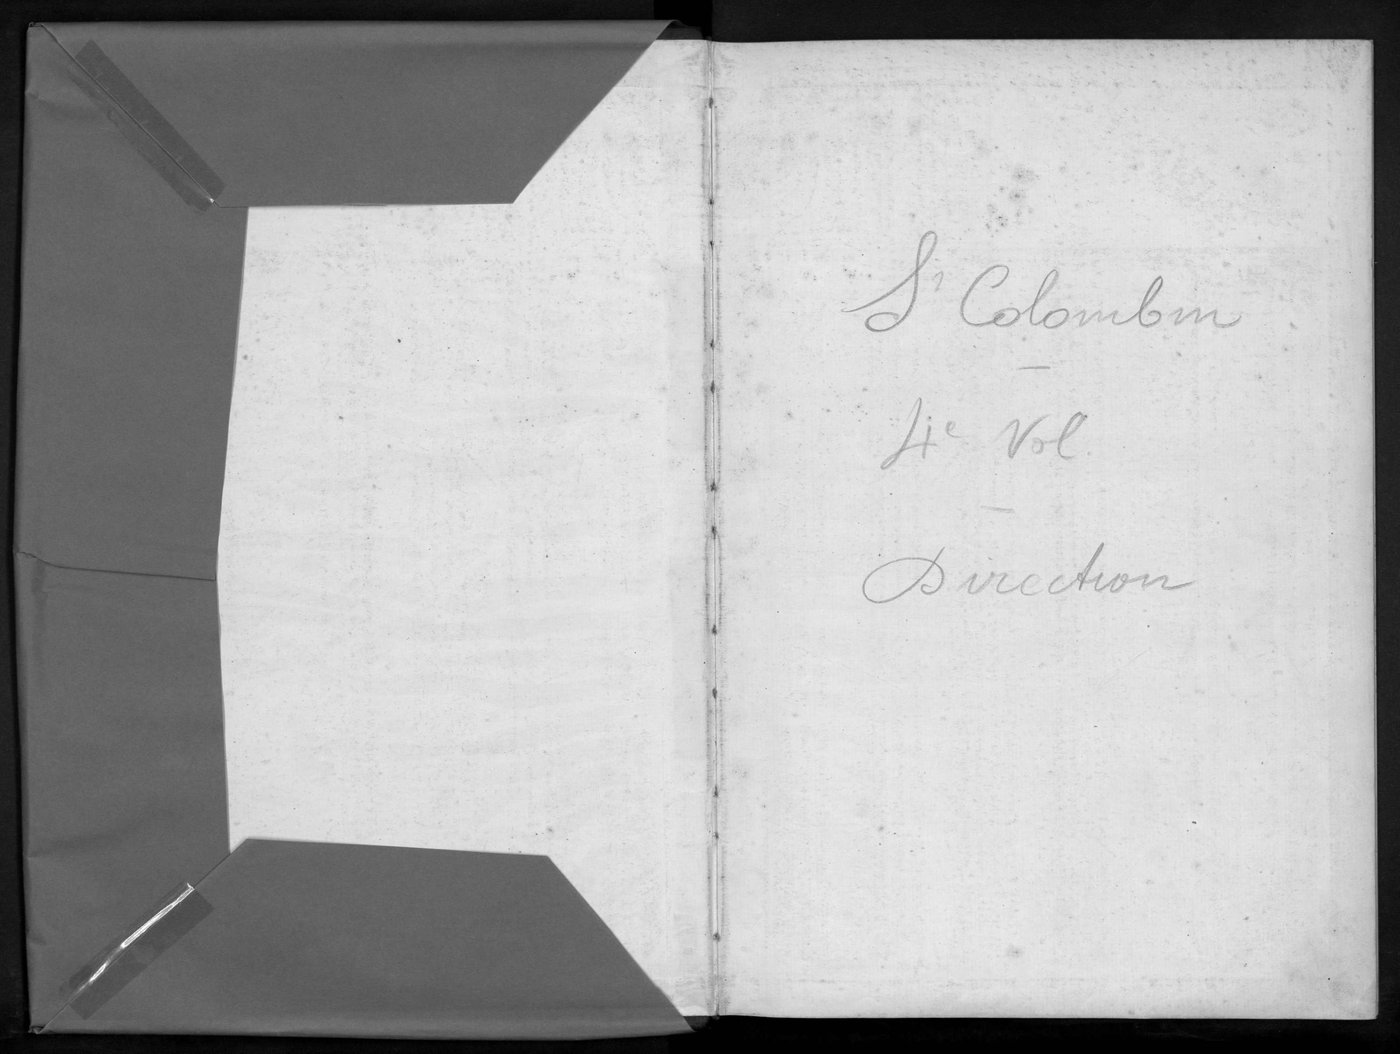 St Colombin
4e Vol.
Direction